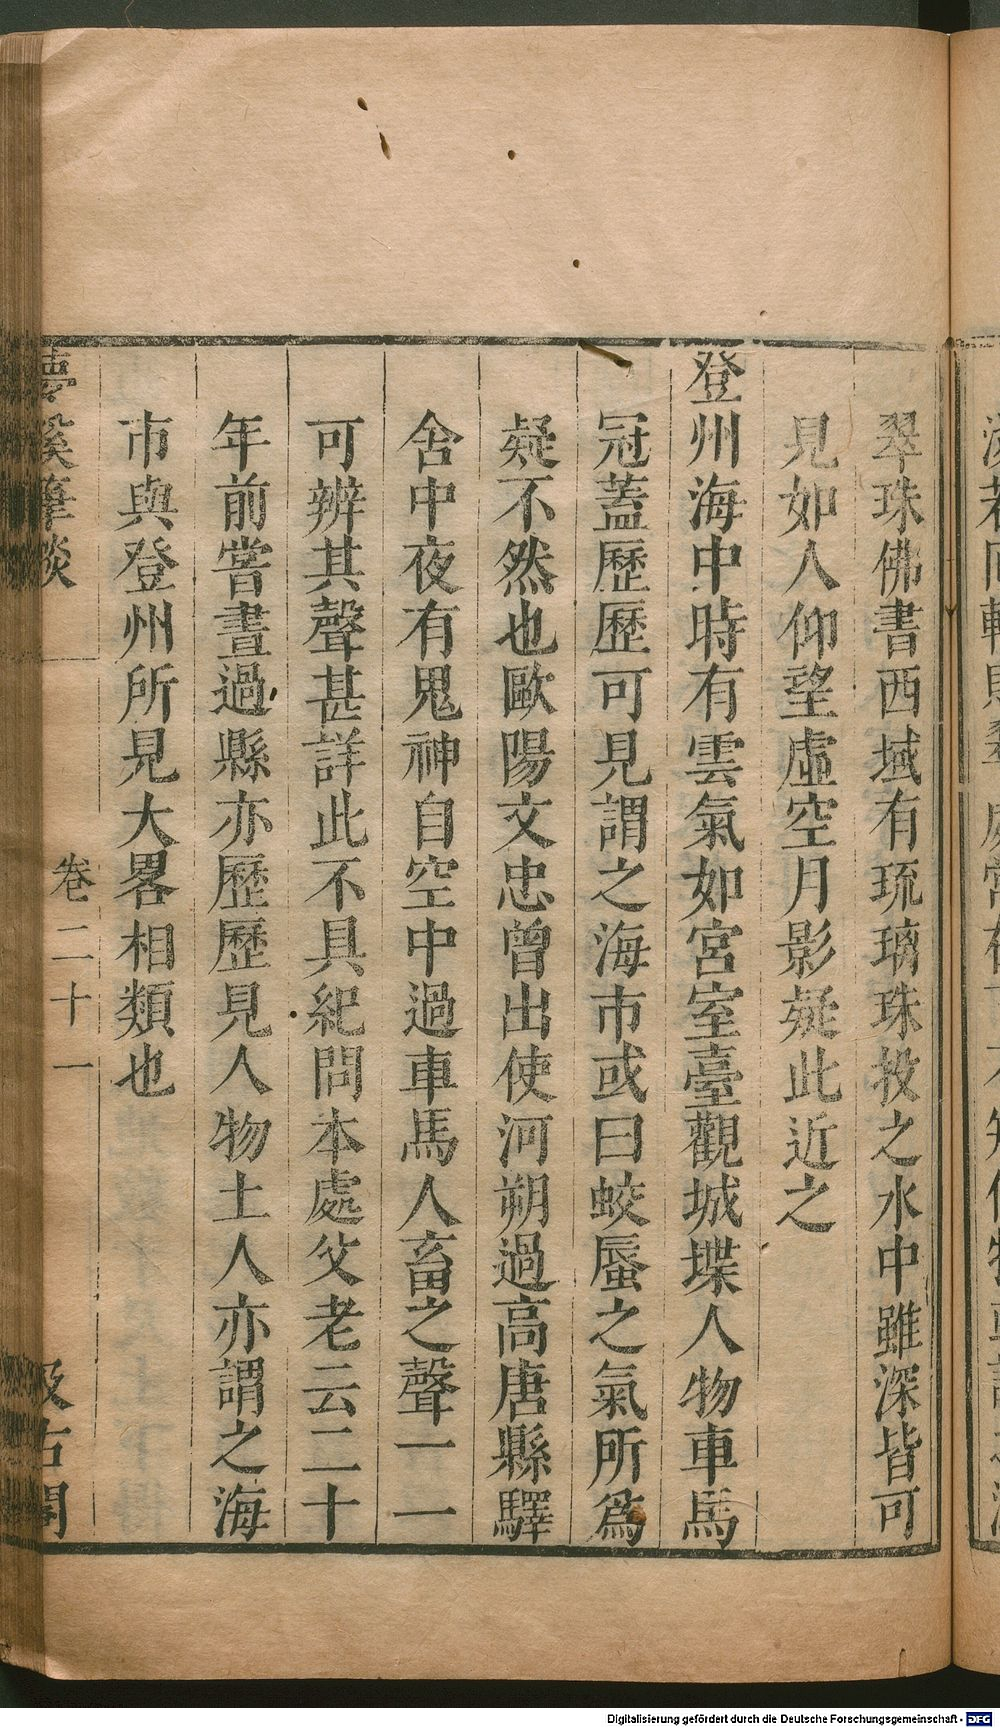 翠珠佛書西域有琉璃珠投之水中雖深皆可
見如人仰望虛空月影疑此近之
登州海中時有雲氣如宮室臺觀城堞人物車馬
冠蓋歷歷可見謂之海市或曰蛟蜃之氣所爲
疑不然也歐陽文忠曾出使河朔過高唐縣驛
舍中夜有鬼神自空中過車馬人畜之聲一一
可辨其聲甚詳此不具紀問本處父老云二十
年前嘗晝過縣亦歷歷見人物土人亦謂之海
市與登州所見大畧相類也
夢溪筆談 卷二十一 汲古閣
Digitalisierung gefördert durch die Deutsche Forschungsgemeinschaft - DFG